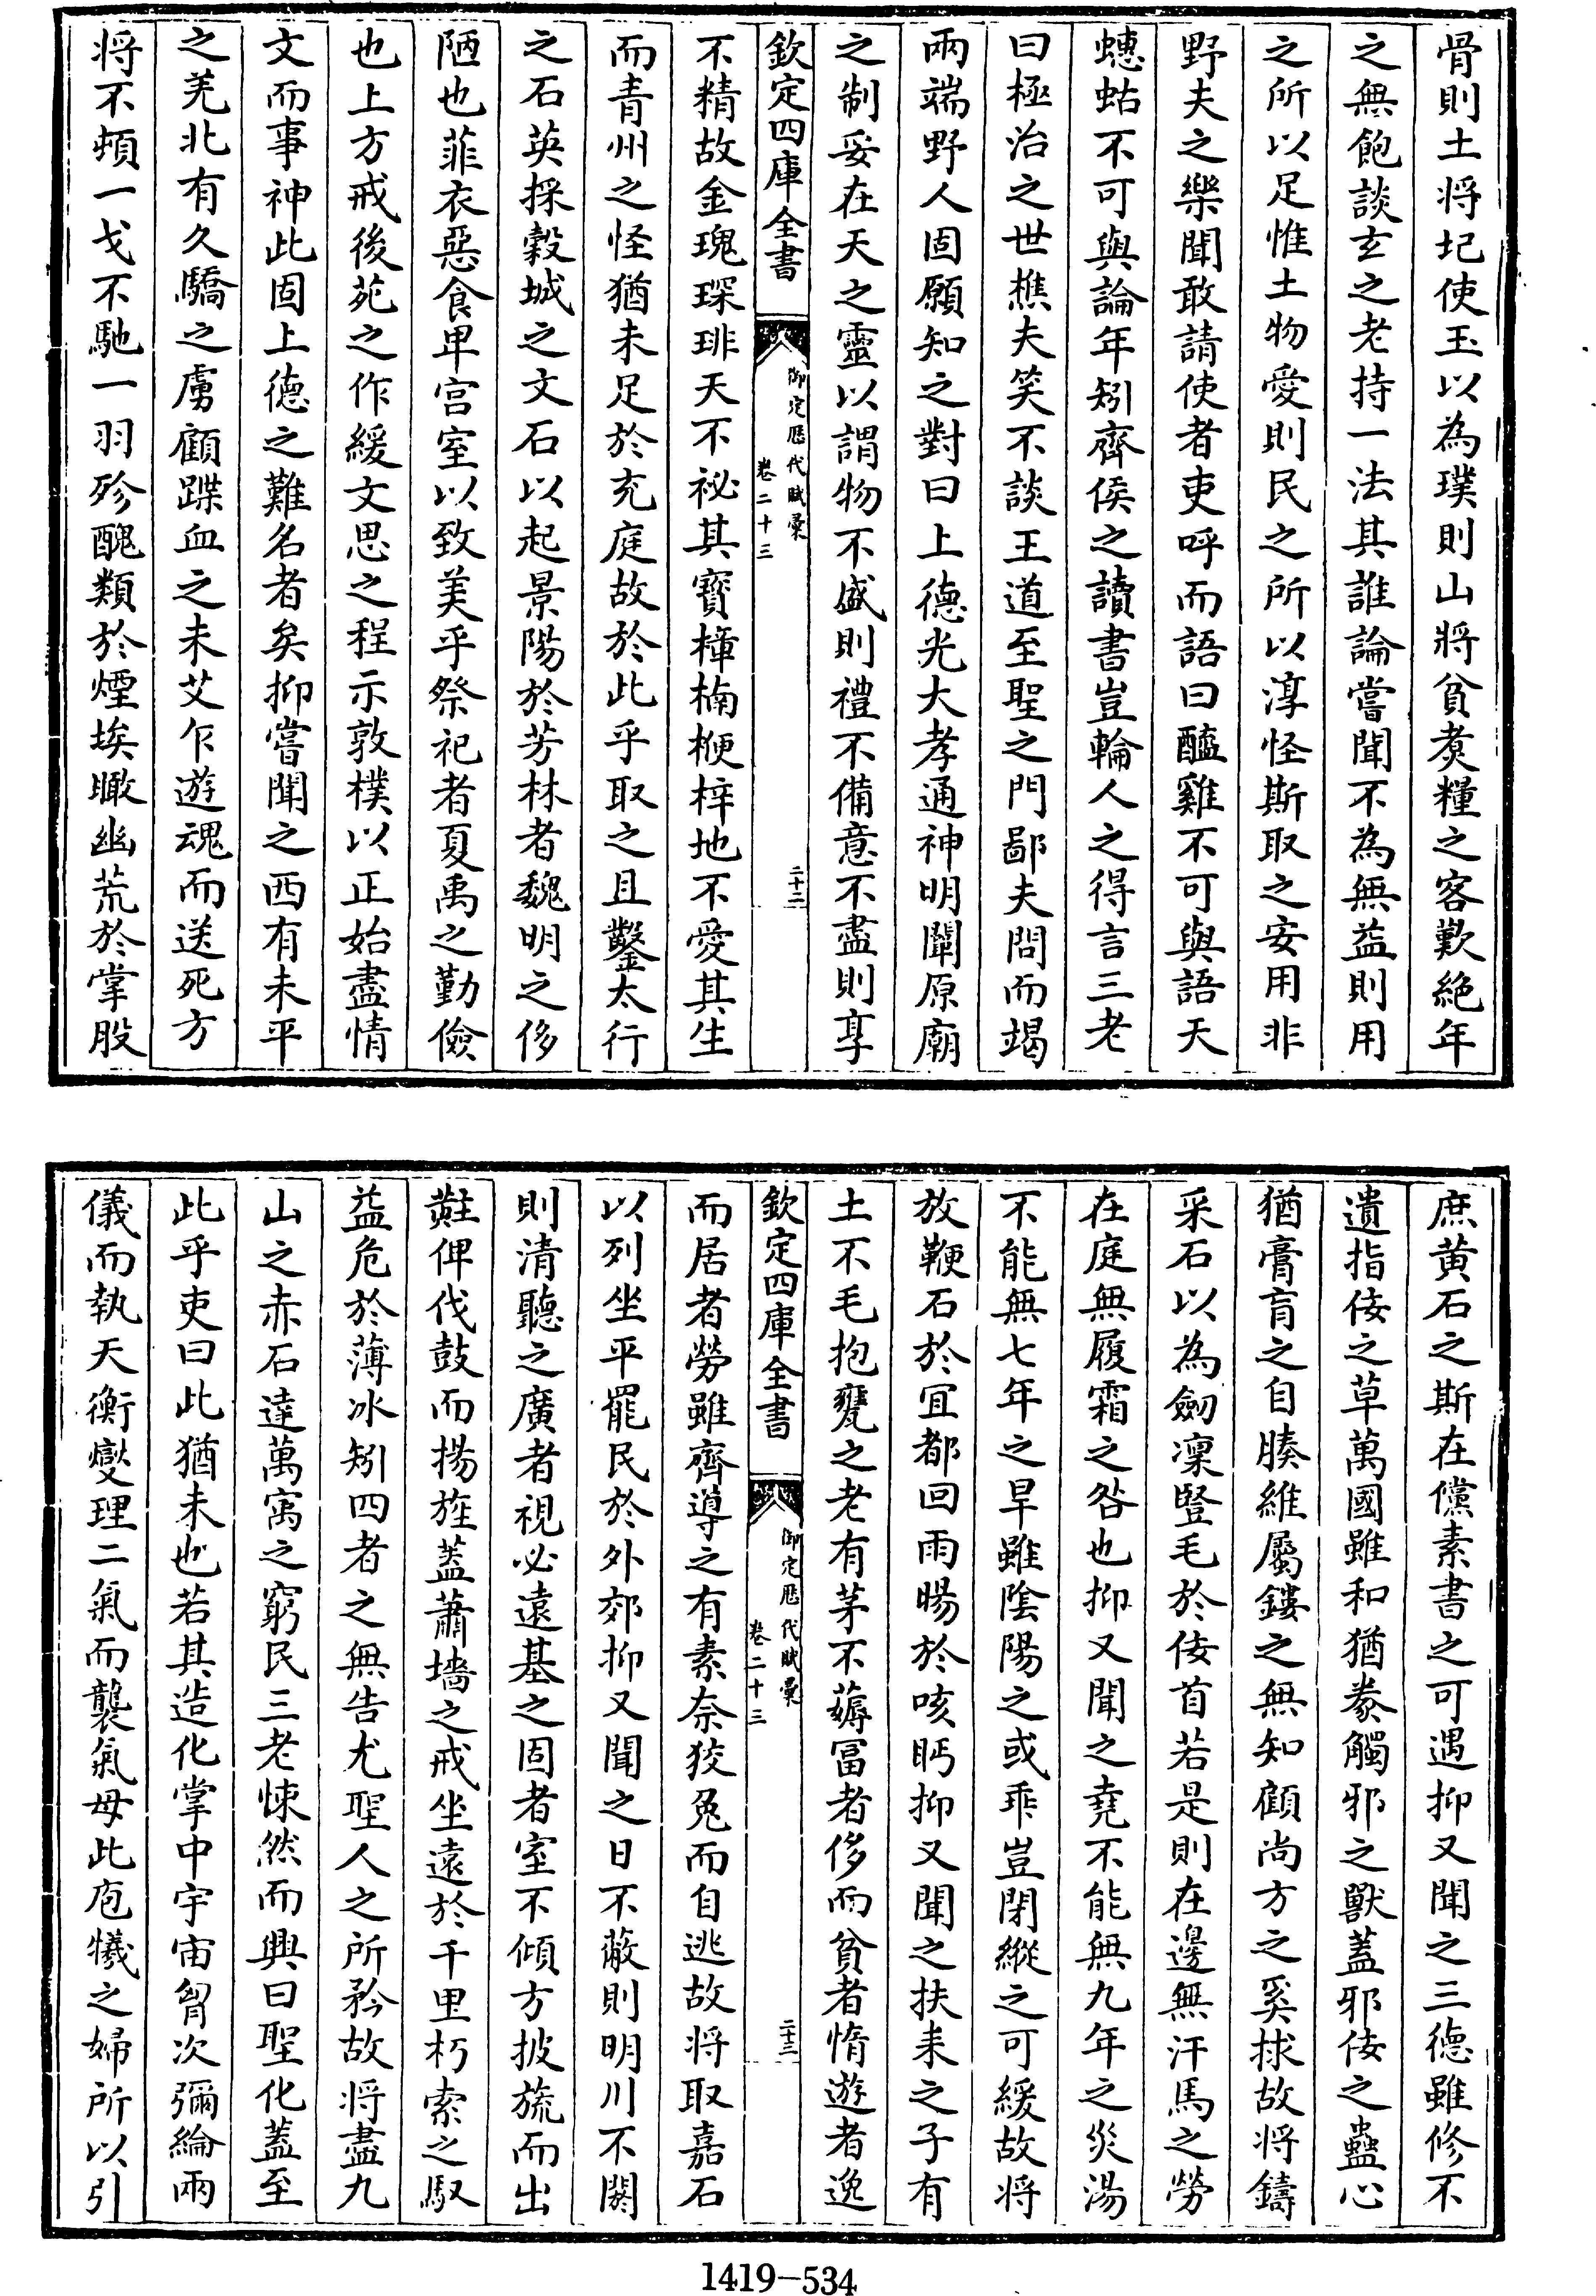 骨則土将圮使玉以為璞則山將貧煑糧之客歎絶年
之無飽談玄之老持一法其誰論嘗聞不為無益則用
之所以足惟土物愛則民之所以淳怪斯取之安用非
野夫之樂聞敢請使者吏呼而語曰醯雞不可與語天
蟪蛄不可與論年矧齊侯之讀書豈輪人之得言三老
曰極治之世樵夫笑不談王道至聖之門鄙夫問而竭
兩端野人固願知之對曰上德光大孝通神明闢原廟
之制妥在天之靈以謂物不盛則禮不備意不盡則享
欽定四庫全書
御定歷代賦彚
卷二十三
二十二
不精故金瑰琛琲天不祕其寳樟楠楩梓地不愛其生
而青州之怪猶未足於充庭故於此乎取之且鑿太行
之石英採糓城之文石以起景陽於芳林者魏明之侈
陋也菲衣惡食卑宫室以致美乎祭祀者夏禹之勤儉
也上方戒後苑之作緩文思之程示敦樸以正始盡情
文而事神此固上德之難名者矣抑嘗聞之西有未平
之羌北有久驕之虜顧蹀血之未艾乍遊魂而送死方
将不頓一戈不馳一羽殄醜類於煙埃瞰幽荒於掌股
庶黄石之斯在儻素書之可遇抑又聞之三德雖修不
遺指佞之草萬國雖和猶豢觸邪之獸蓋邪佞之蠱心
猶膏肓之自腠維屬鏤之無知顧尚方之奚捄故将鑄
采石以為劒凜豎毛於佞首若是則在邊無汗馬之勞
在庭無履霜之咎也抑又聞之堯不能無九年之災湯
不能無七年之旱雖隂陽之或乖豈閉縱之可緩故将
放鞭石於宜都回雨暘於咳眄抑又聞之扶耒之子有
土不毛抱甕之老有茅不薅富者侈而貧者惰遊者逸
欽定四庫全書
御定歷代賦彚
卷二十三
二十三
而居者勞雖齊導之有素奈狡兔而自逃故将取嘉石
以列坐平罷民於外郊抑又聞之日不蔽則明川不閼
則清聽之廣者視必遠基之固者室不傾方披旒而出
黈俾伐鼓而揚旌蓋蕭墻之戒坐遠於千里朽索之馭
益危於薄冰矧四者之無告尤聖人之所矜故将盡九
山之赤石達萬㝢之窮民三老悚然而興曰聖化蓋至
此乎吏曰此猶未也若其造化掌中宇宙胷次彌綸兩
儀而執天衡爕理二氣而襲氣母此庖犧之婦所以引
1419-534